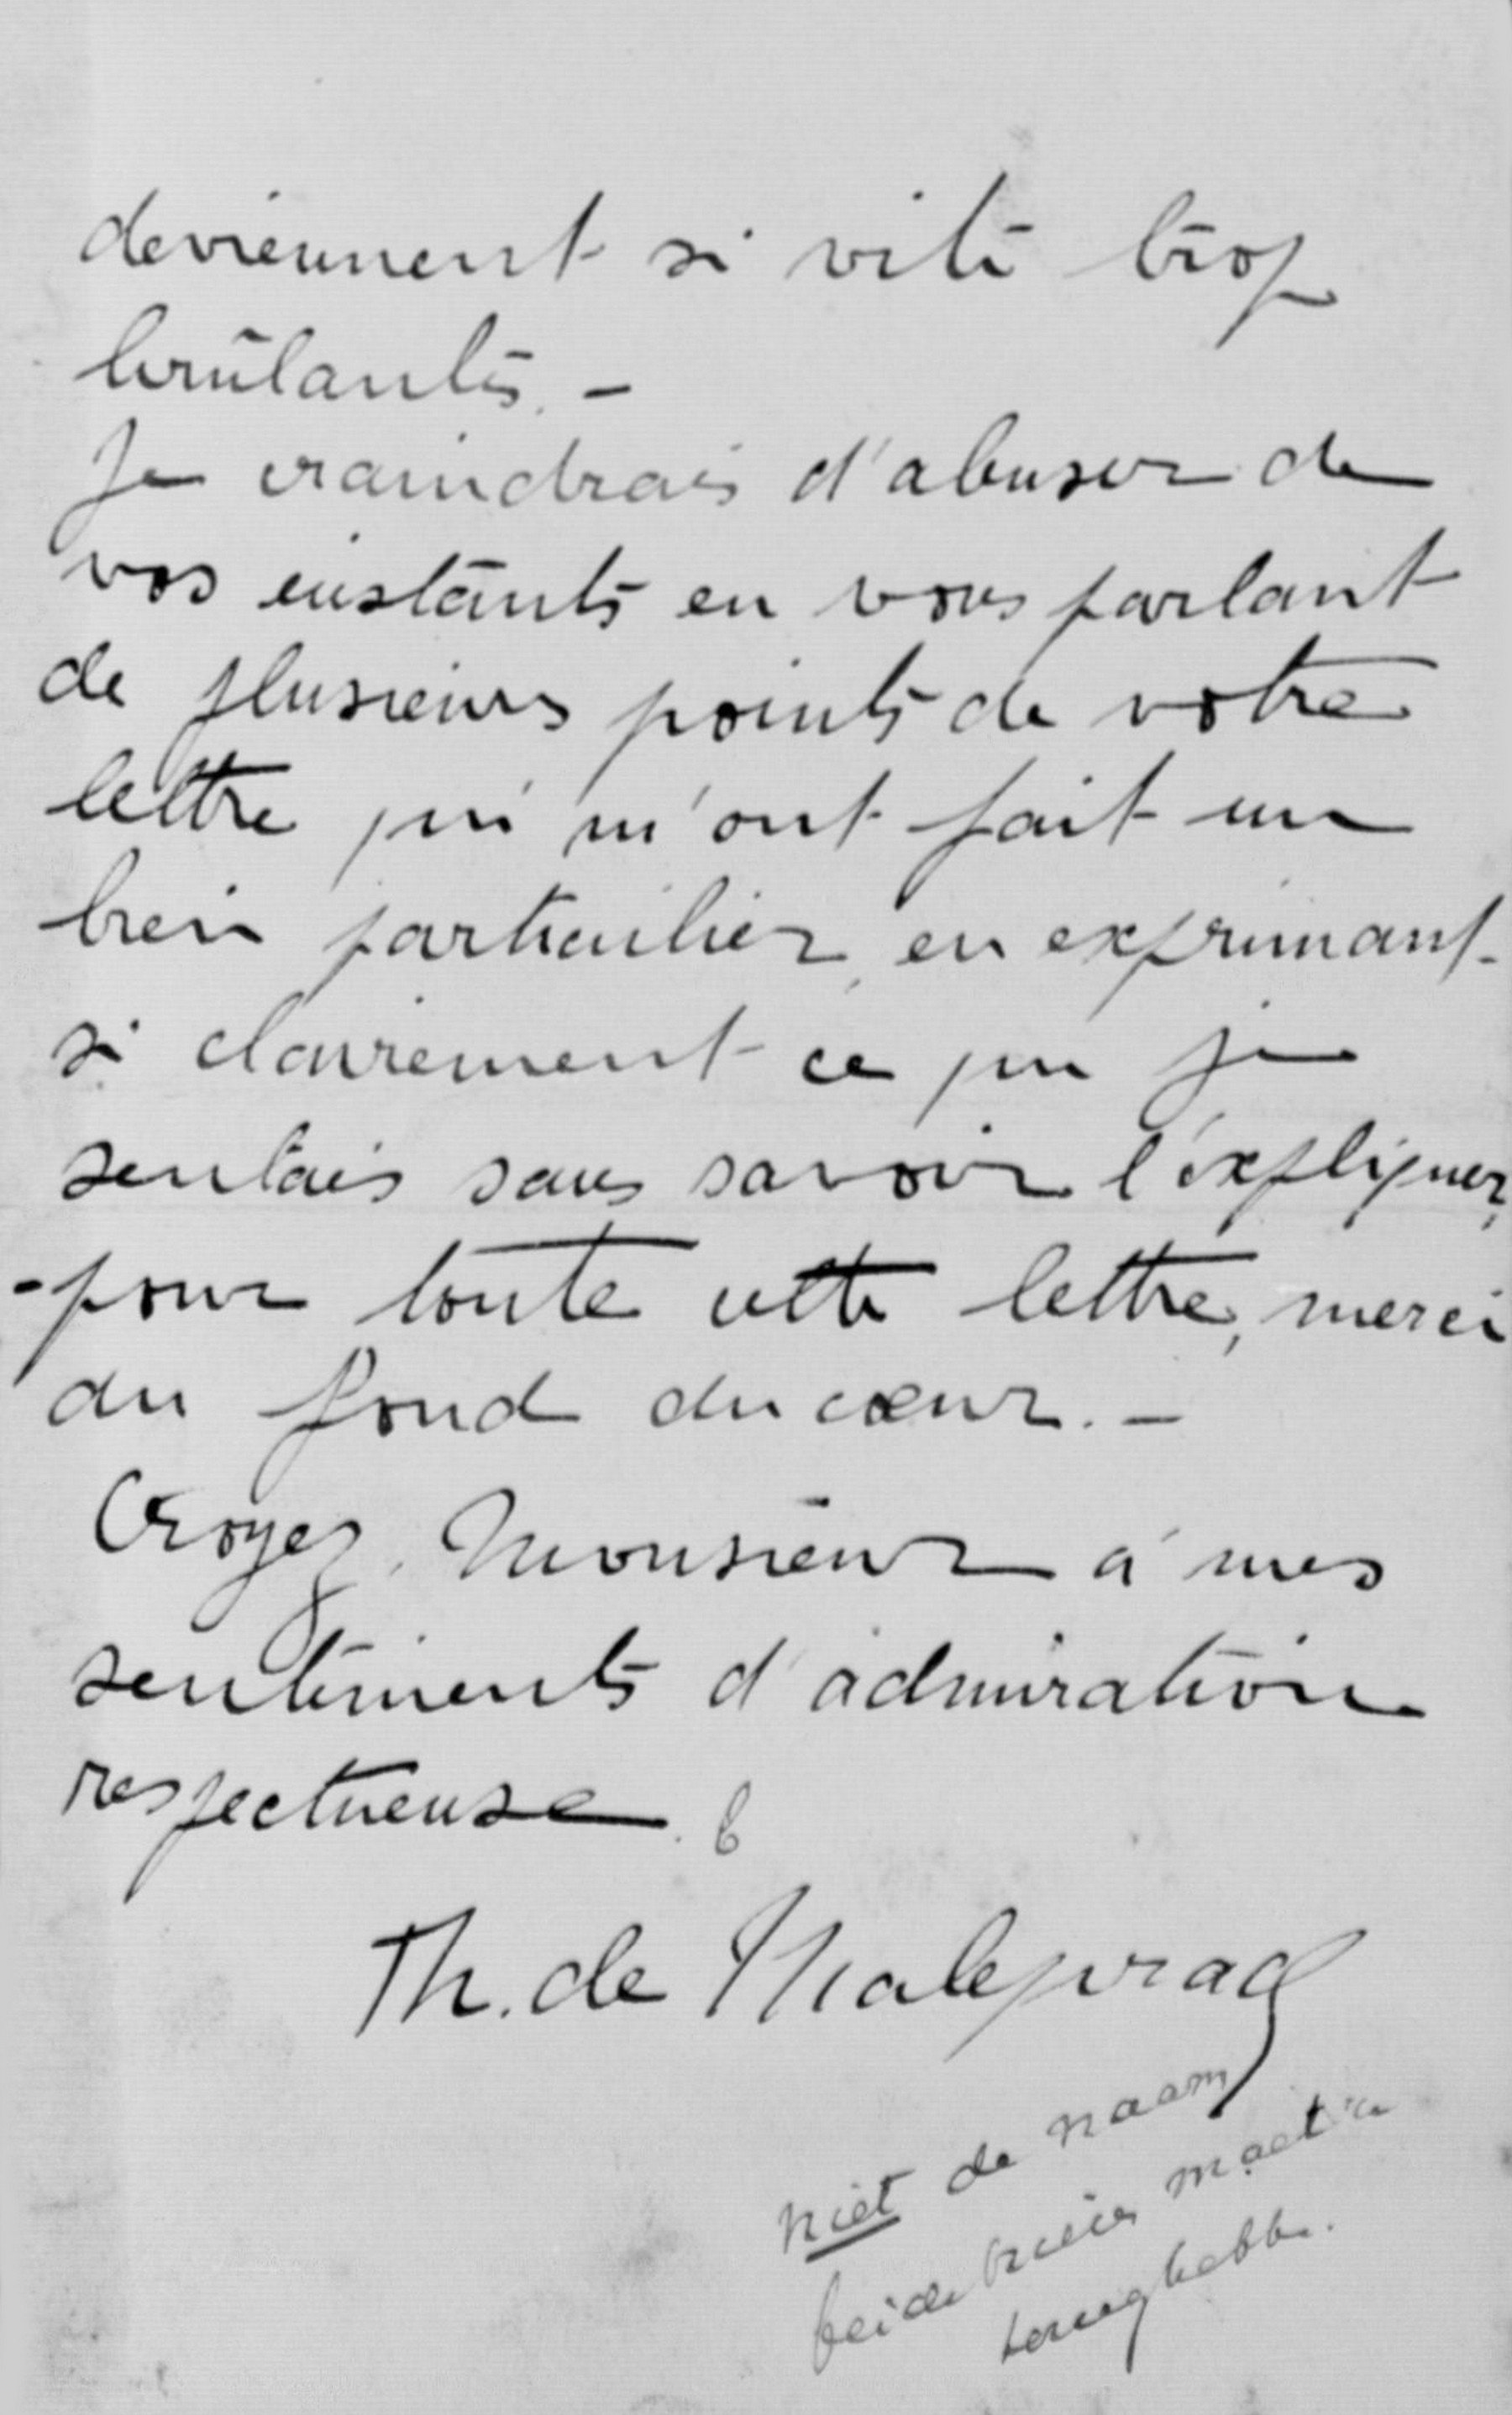 deviennent si vite trop
brûlants. -
Je craindrais d'abuser de
vos instants en vous parlant
de plusieurs points de votre
lettre qui m'ont fait un
bien particulier, en exprimant
si clairement ce que je
sentais sans savoir l'expliquer,
- pour toute cette lettre, merci
du fond du cœur. -
Croyez, Monsieur à mes
sentiments d'admiration
respectueuse.
Th. de Maleprad
niet de naam
beide brieven moet ik
terughebben.